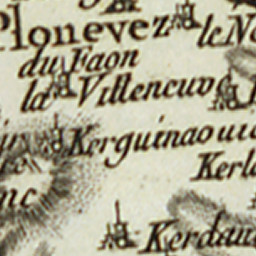 Plonevez
le No
du Faon
la Villeneuve
Kerguinaoui
Kerl
nc
Kerdau